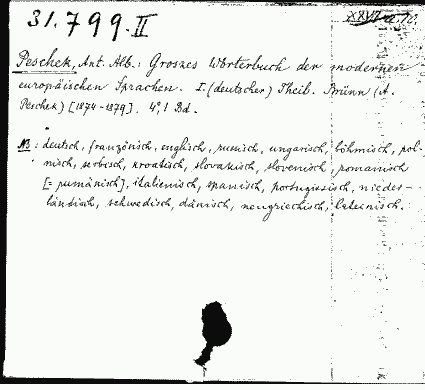 31.799.II
Peschek, Ant. Alb.: Groszes Wörterbuch der modernen
europäischen Sprachen. I. (deutscher) Theil. Brünn (A.
Peschek) [1874-1879]. 4°, 1 Bd.
NB: deutsch, französisch, englisch, russisch, ungarisch, böhmisch, pol-
nisch, serbisch, kroatisch, slovakisch, slovenisch, romanisch
[= rumänisch], italienisch, spanisch, portugiesisch, nieder-
ländisch, schwedisch, dänisch, neugriechisch, lateinisch.